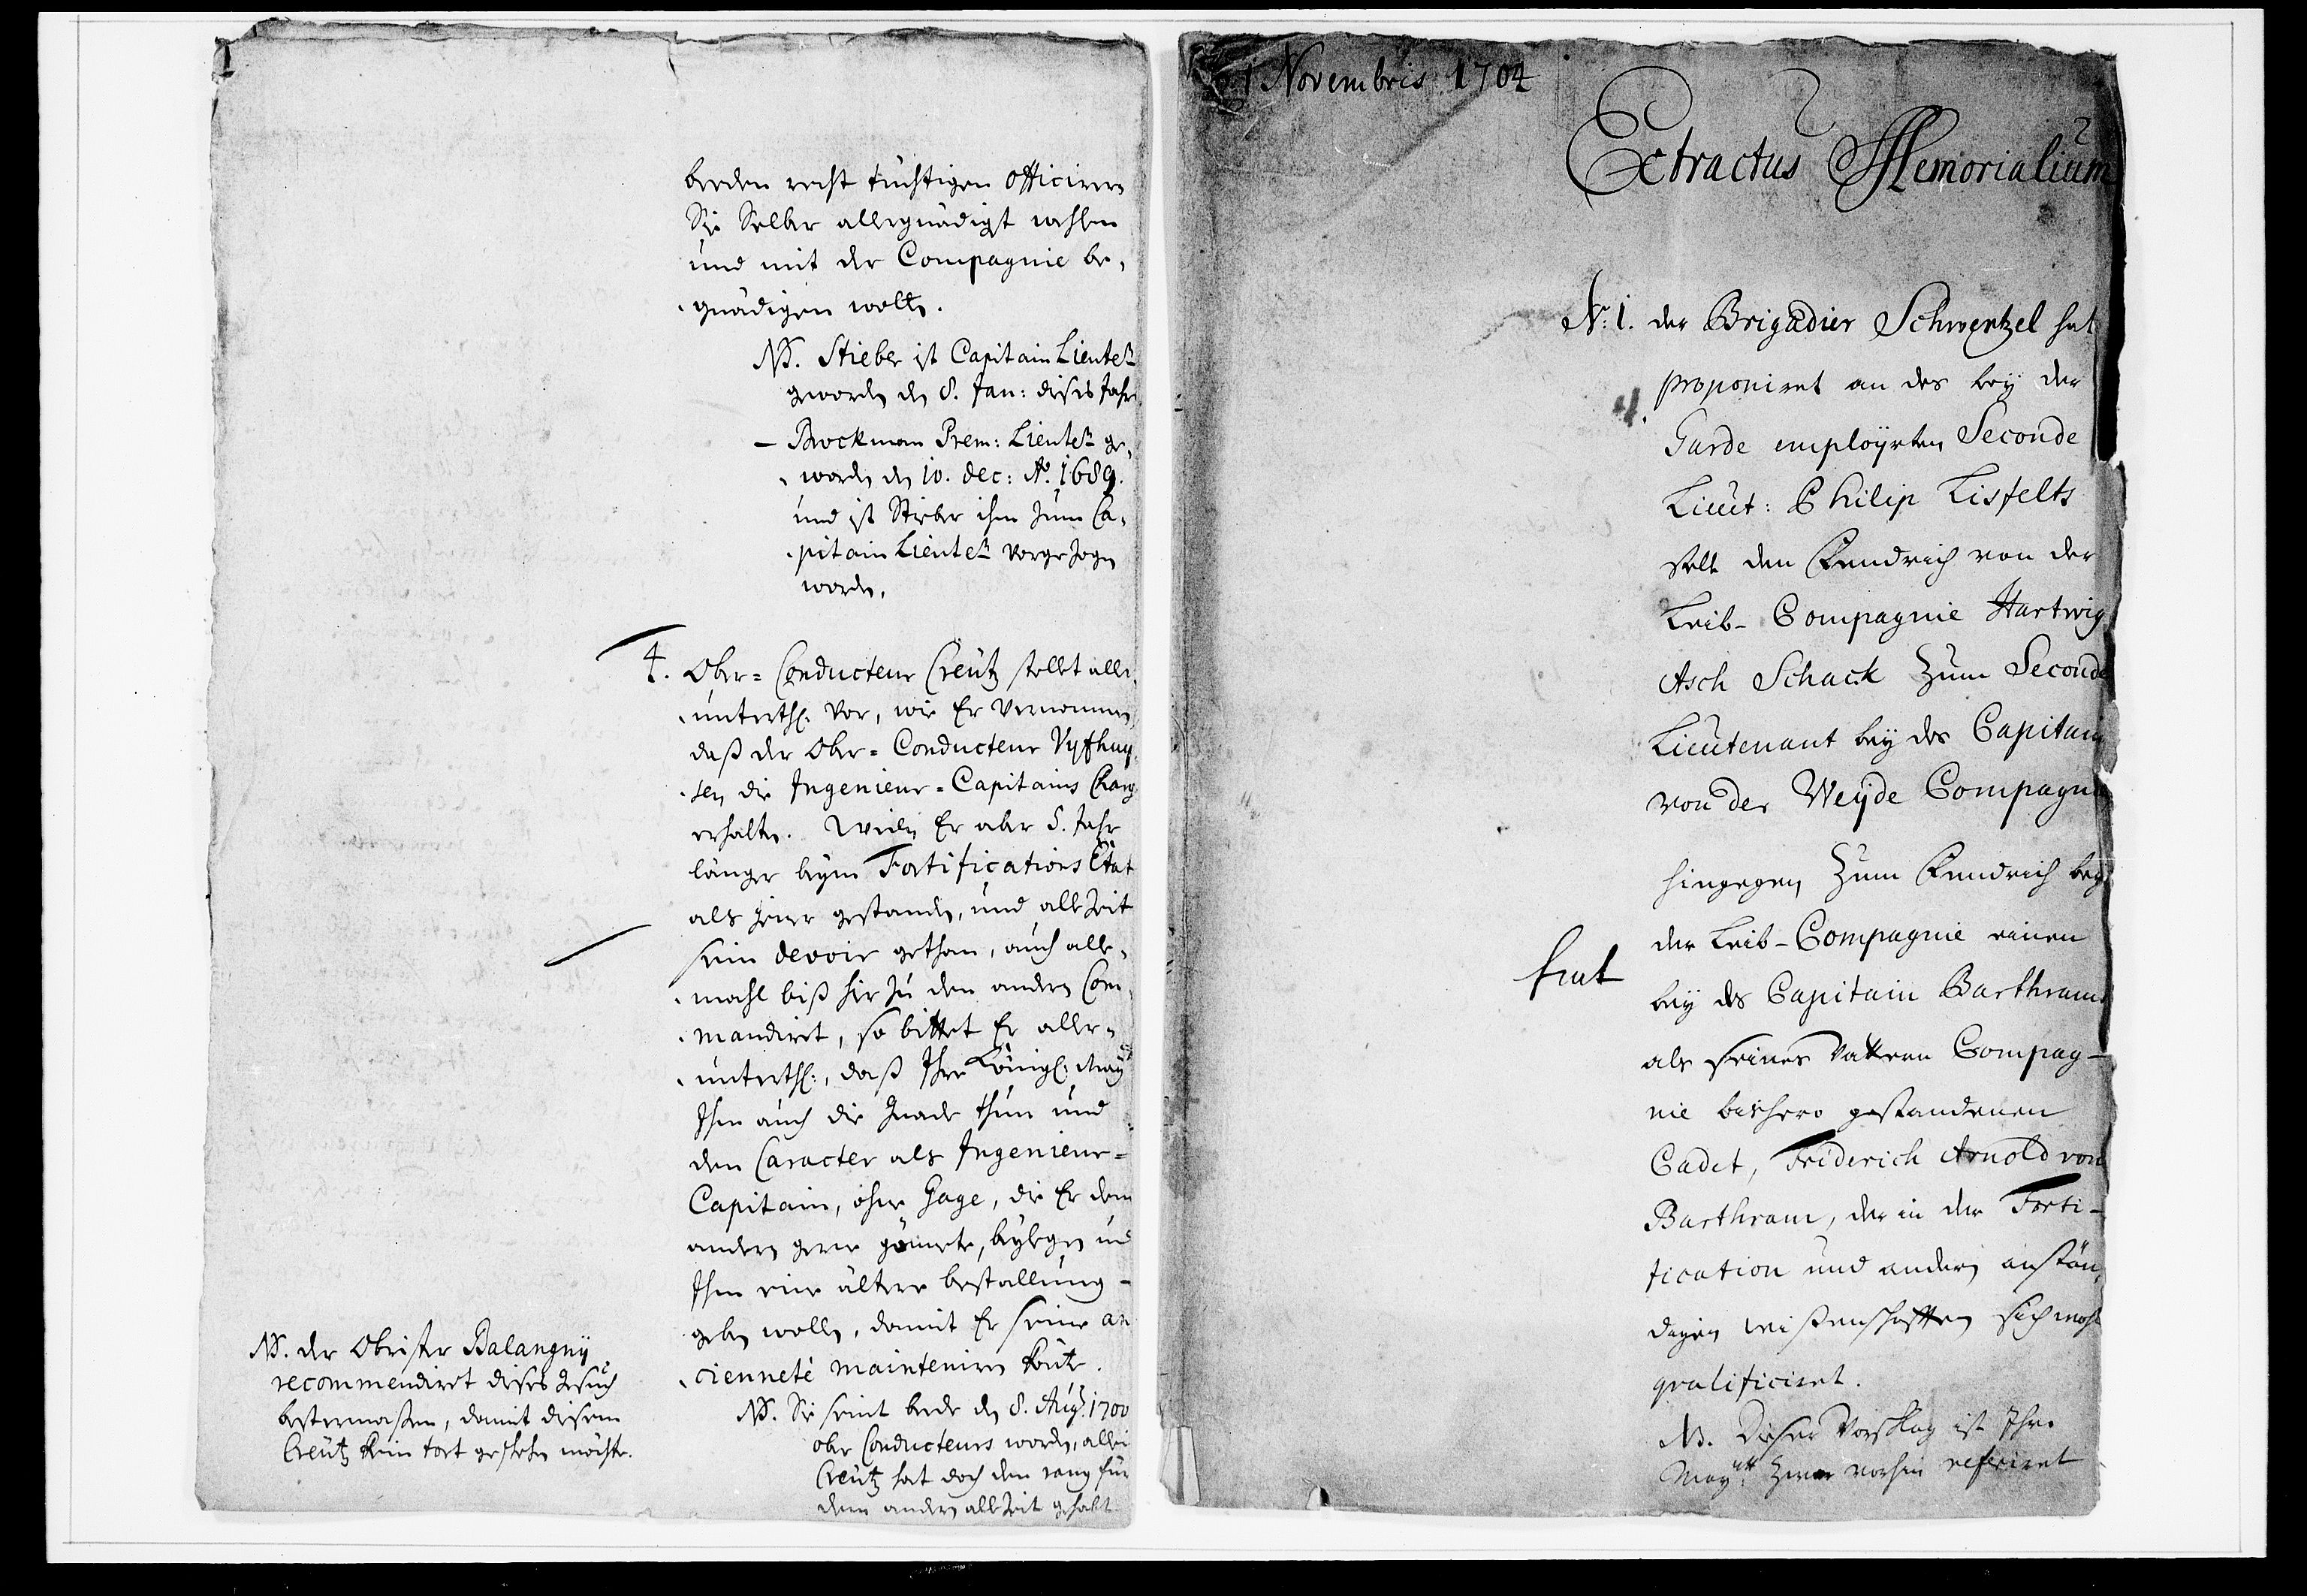 beeden recht tüchtigen Officirern
Sie Selber allergnädigst wehlen
und mit der Compagnie be-
gnädigen wolle.
NB. Stieber ist Capitain Lieutet
geworden den 8. Jan: dieses Jahrs
- Brockman Prem: Lieutet ge-
worden den 10. Dec: Ao. 1689.
und ist Stieber ihm zum Ca-
pitain Lieutet vorgezogen
worden.
4. Ober-Conducteur Creütz stellet aller-
unterth. vor, wie Er vernommen
daß der Ober-Conducteur Vyfhuy-
sen die Ingenieur-Capitains Charg
erhalten. Weilen Er aber 8. Jahr
länger beym Fortifications Etat
als jener gestanden, und alle Zeit
sein devoir gethan, auch alle-
mahl biß hie zu den andern Com-
mandiret, so bittet Er aller-
unterth:, daß Ihre Königl: May
Ihm auch die Gnade thun und
den Caracter als Ingenieur-
Capitain, ohne Gage, die Er dem
andern gerne gönnete, beylegen und
Ihm eine ältere bestallung
geben wolle, damit Er seine an
cienneté mainteniren könte.
NB. Sie seint beede den 8. Aug. 1700
ober Conducteurs worden, allein
Creütz hat doch den rang für
dem andern alle Zeit gehabt
NB. der Obrister Balangny
recommendiret dieses Gesuch
bestermaßen, damit diesem
Creütz kein tort geschehen möchte.
1 Novembris 1704
Extractus Memorialium
No: 1. der Brigadier Schwertzel hat
proponiret an des bey der
Garde employrten Seconde
Lieut: Philip Lisfelts
stelle den Fendrich von der
Leib-Compagnie Hartwig
Asch Schack zum Seconde
Lieutenant bey des Capitain
von der Weyde Compagnie
hingegen zum Fendrich bey
der Leib-Compagnie einen
bey des Capitain Barthrams
als seines Vattern Compag-
nie bishero gestandenen
Cadet, Friderich Arnold von
Barthram, der in der Forti-
fication und andern anstän-
digen wißenschafften sich wohl
qualificiret.
NB. Dieser Vorschlag ist Ihre
Maytt: zwar vorhin referiret
fiat